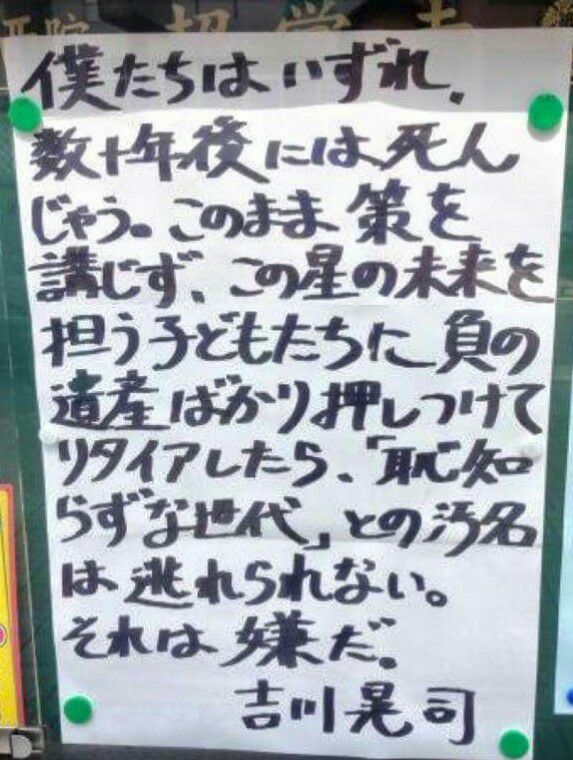 僕たちはいずれ、
数十年後には死ん
じゃう。このまま策を
講じず、この星の未来を
担う子どもたちに負の
遺産ばかり押しつけて
リタイアしたら、「恥知
らずな世代」との汚名
は逃れられない。
それは嫌だ。
吉川晃司